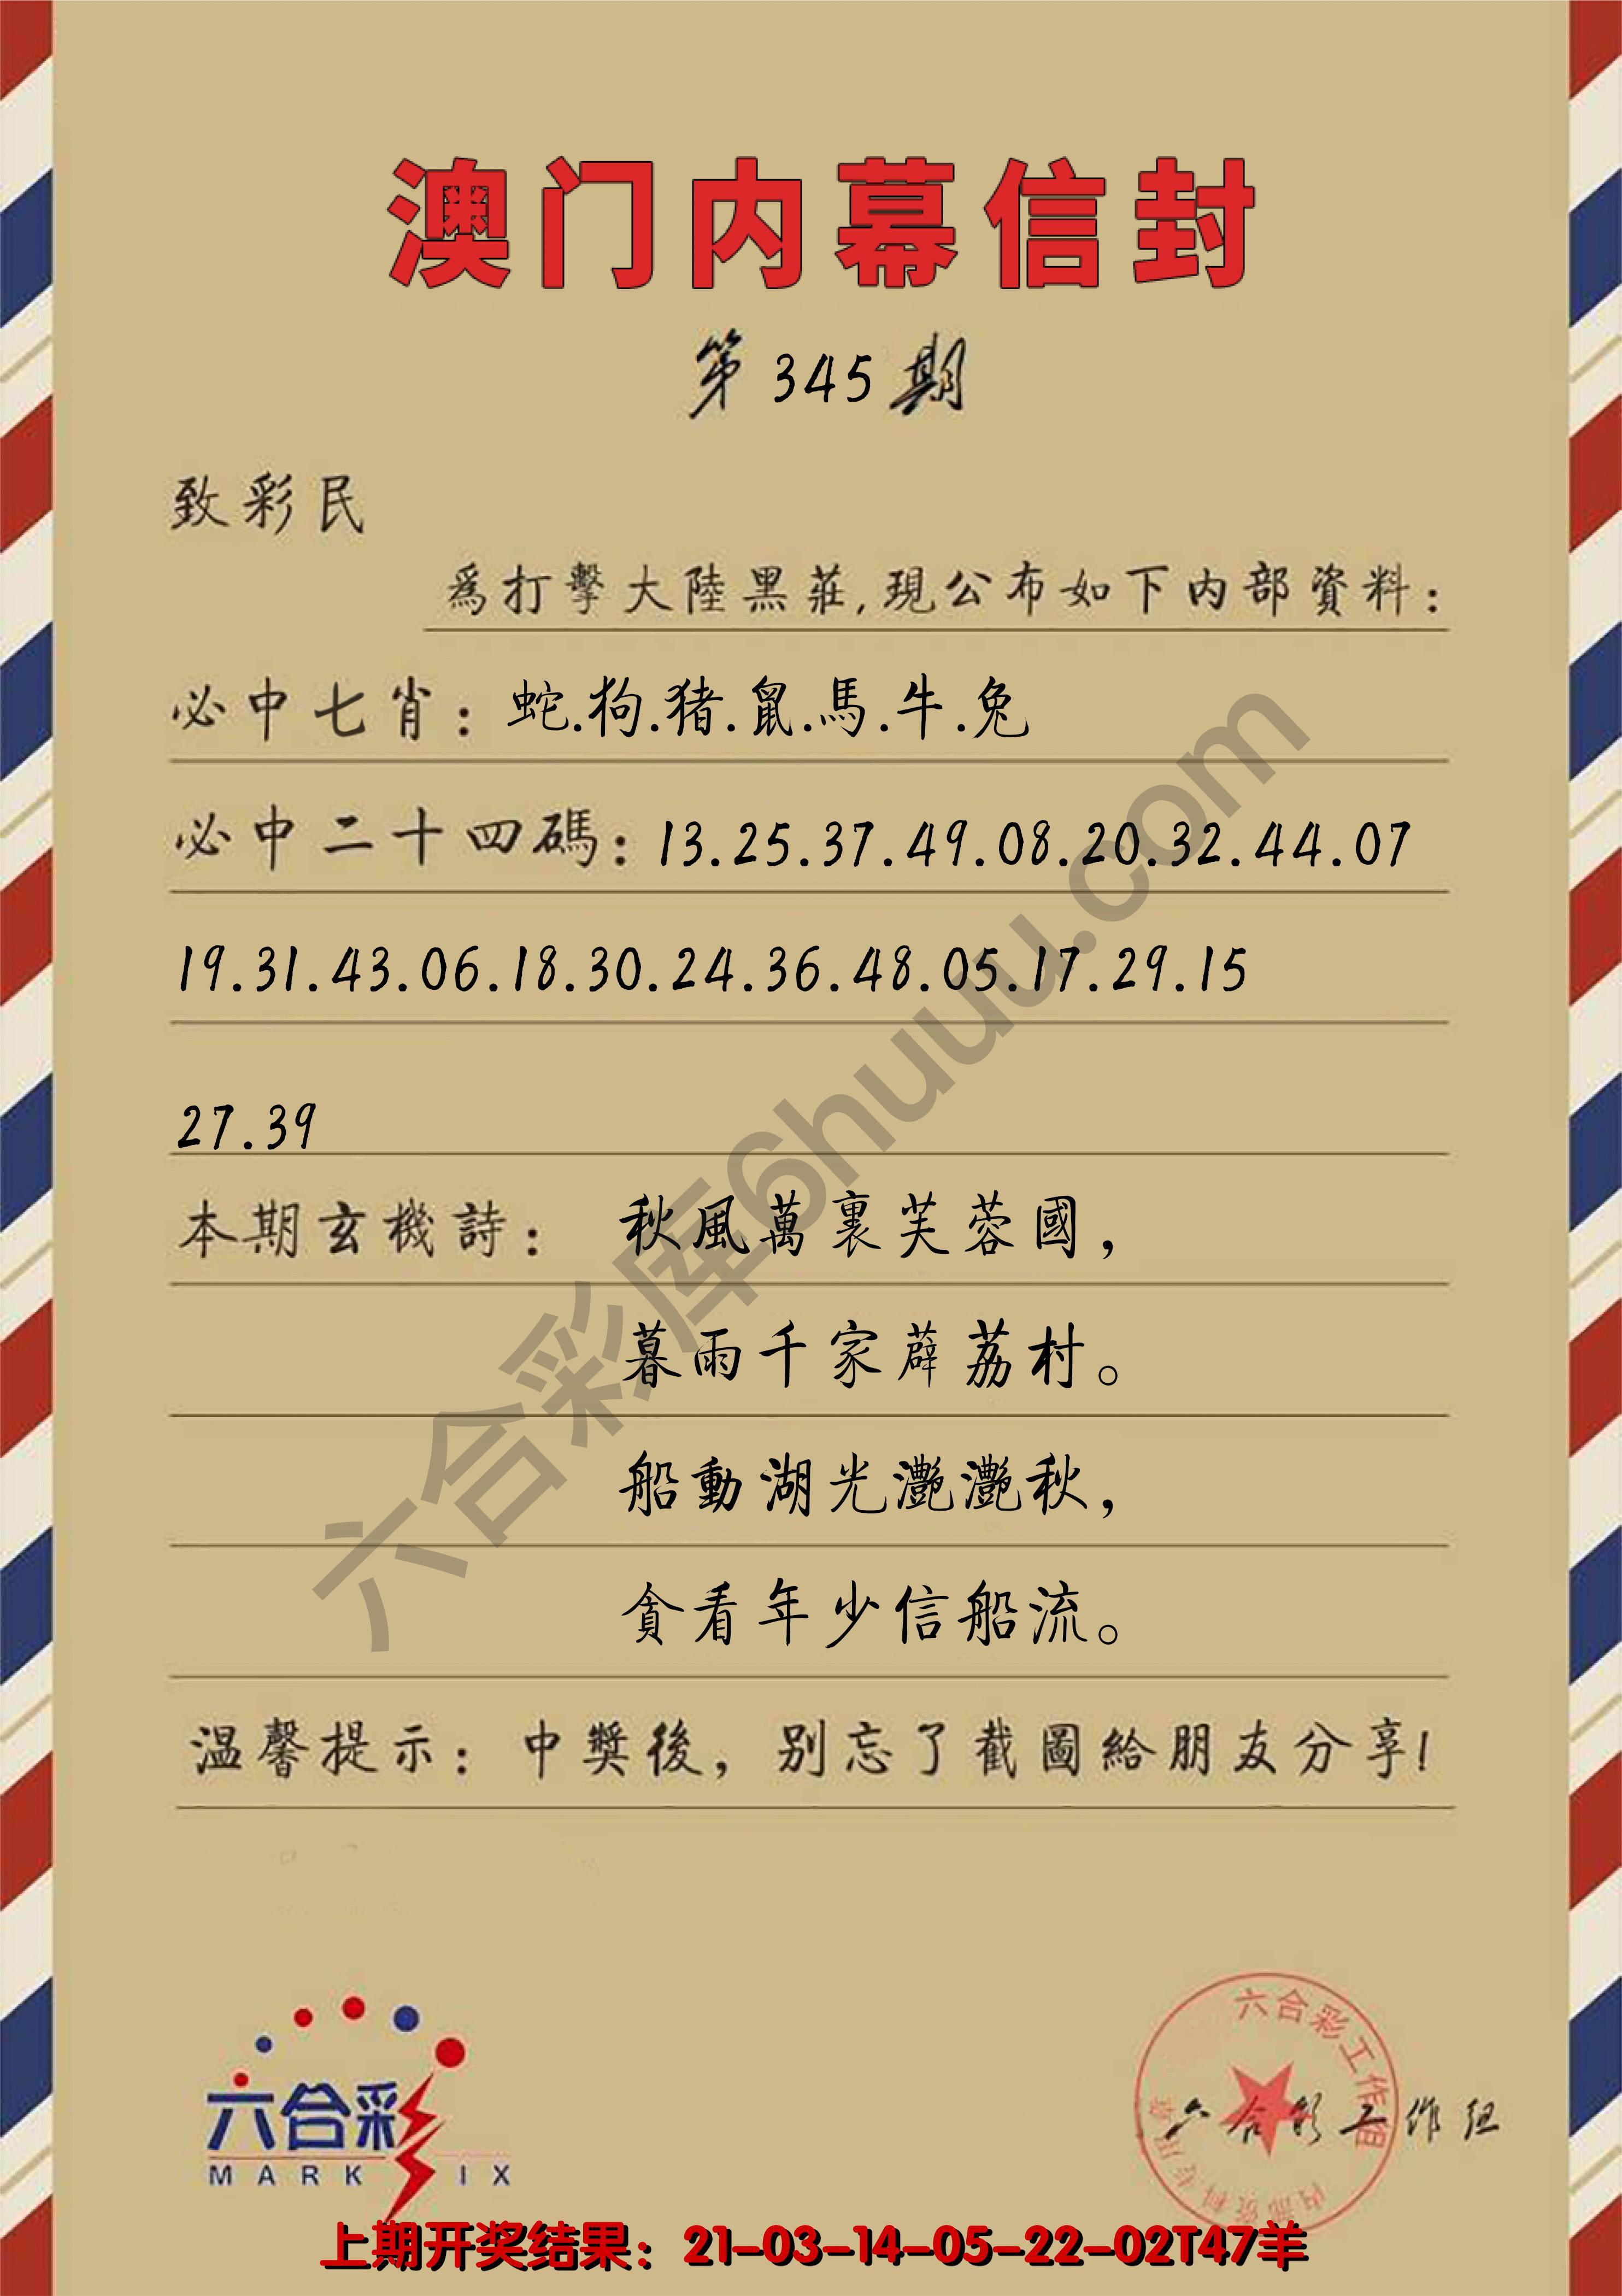 澳门内幕信封
第345期
致彩民
為打擊大陸黑莊,現公布如下内部資料:
必中七肖:蛇.狗.猪.鼠.馬.牛.兔
必中二十四碼:13.25.37.49.08.20.32.44.07
19.31.43.06.18.30.24.36.48.05.17.29.15
27.39
本期玄機詩: 秋風萬裏芙蓉國,
暮雨千家薜荔村。
船動湖光灩灩秋,
貪看年少信船流。
温馨提示:中獎後,别忘了截圖給朋友分享!
六合彩库6huuu.com
六合彩
MARK IX
六合彩工作组
内部资料专用章
六合彩工作组
上期开奖结果:21-03-14-05-22-02T47羊